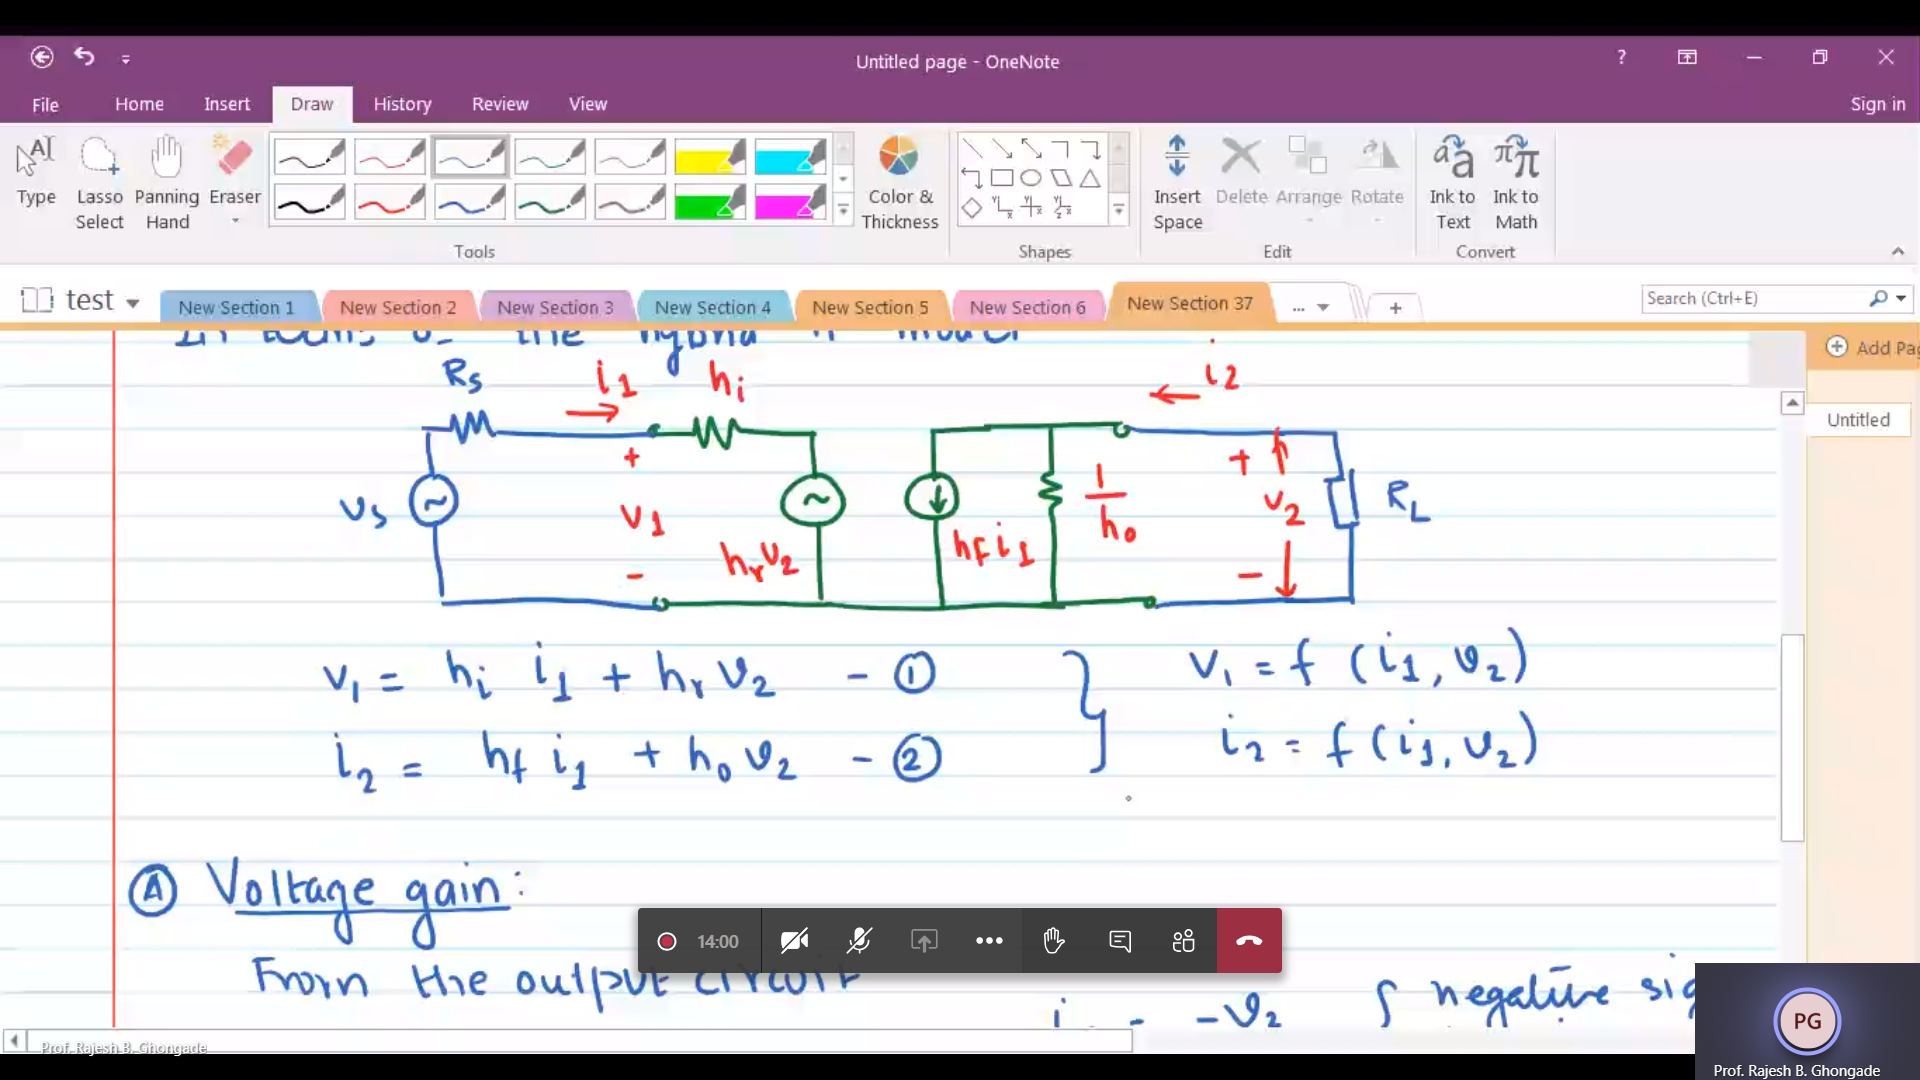 Untitled page - OneNote
?
File Home Insert Draw History Review View
Sign in
Type
Lasso Select
Panning Hand
Eraser
Color & Thickness
Insert Space
Delete
Arrange
Rotate
Ink to Text
Ink to Math
Tools
Shapes
Edit
Convert
test
New Section 1
New Section 2
New Section 3
New Section 4
New Section 5
New Section 6
New Section 37
...
+
Search (Ctrl+E)
Add Pag
Untitled
the hybrid model
Rs i1 hi i2
vs + v1 - hrv2 hf i1 1/ho + v2 - RL
v1 = hi i1 + hr v2 - ①
i2 = hf i1 + ho v2 - ②
v1 = f (i1, v2)
i2 = f (i1, v2)
Ⓐ Voltage gain:
From the output circuit
-v2 negative sig
14:00
Prof. Rajesh B. Ghongade
PG
Prof. Rajesh B. Ghongade